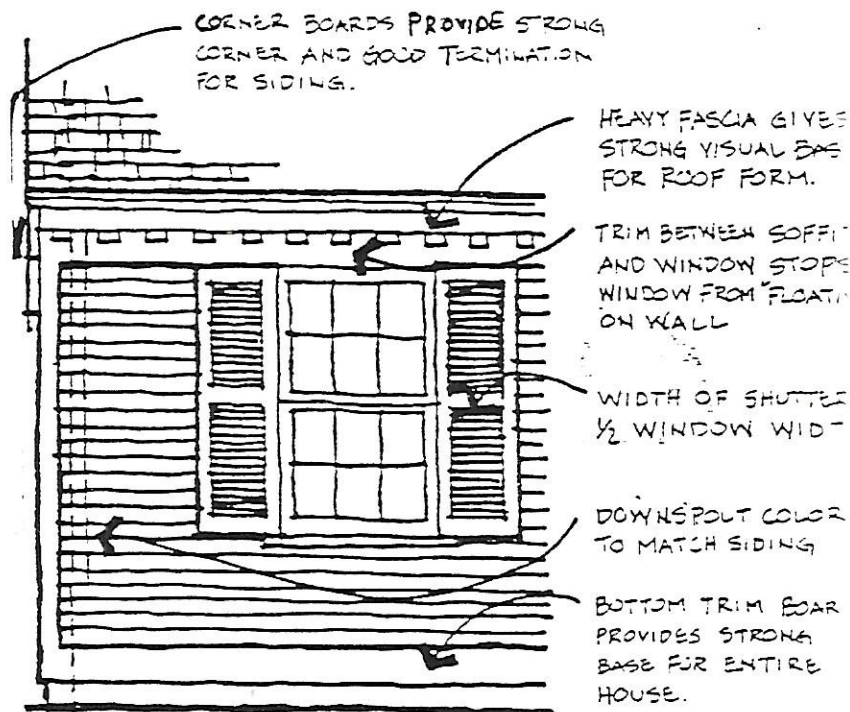 CORNER BOARDS PROVIDE STRONG
CORNER AND GOOD TERMINATION
FOR SIDING.
HEAVY FASCIA GIVES
STRONG VISUAL BAS
FOR ROOF FORM.
TRIM BETWEEN SOFFIT
AND WINDOW STOPS
WINDOW FROM "FLOATI
ON WALL
WIDTH OF SHUTTE
1/2 WINDOW WIDT
DOWNSPOUT COLOR
TO MATCH SIDING
BOTTOM TRIM BOAR
PROVIDES STRONG
BASE FOR ENTIRE
HOUSE.